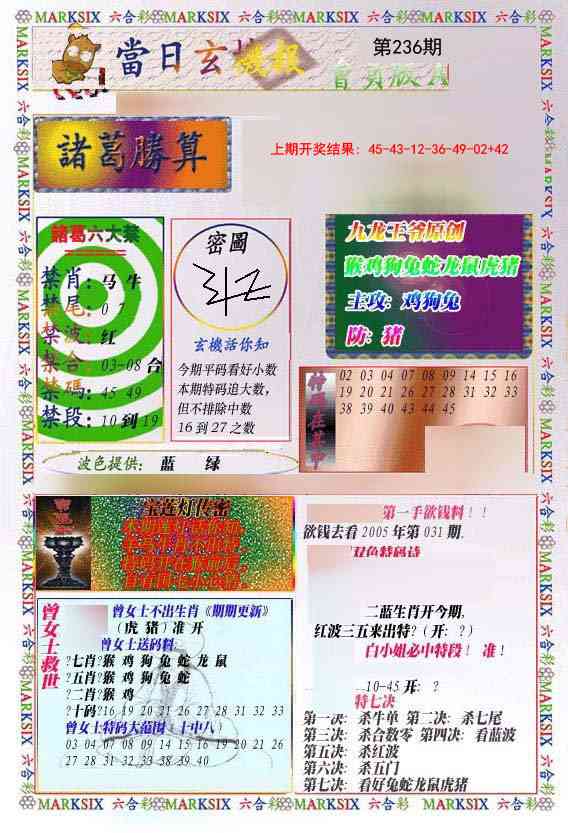 MARKSIX 六合彩 MARKSIX 六合彩 MARKSIX 六合彩 MARKSIX 六合彩 MARKSIX
當日玄機報
第236期
首頁版A
諸葛勝算
上期开奖结果：45-43-12-36-49-02+42
諸葛六大禁
禁肖：马牛
禁尾：0 7
禁波：红
禁合：03-08合
禁碼：45 49
禁段：10到19
密圖
玄機活你知
今期平码看好小数
本期特码追大数，
但不排除中数
16到27之数
九龙王爷原创
猴鸡狗兔蛇龙鼠虎猪
主攻：鸡狗兔
防：猪
特码在其中
02 03 04 07 08 09 14 15 16
19 20 21 26 27 28 31 32 33
38 39 40 43 44 45
波色提供： 蓝 绿
宝莲灯传密
曾女士救世
曾女士不出生肖《期期更新》
（虎 猪）准开
曾女士送码料
?七肖?猴 鸡 狗 兔 蛇 龙 鼠
?五肖?猴 鸡 狗 兔 蛇
?二肖?猴 鸡
?十码?16 19 20 21 26 27 28 31 32 33
曾女士特码大范围—十中八）
03 04 07 08 09 14 15 16 19 20 21 26
27 28 31 32 33 38 39 40
第一手欲钱料！！
欲钱去看2005年第031期，
双色特码诗
二蓝生肖开今期，
红波三五来出特?（开：?）
白小姐必中特段！ 准！
10-45 开： ?
特七决
第一决：杀牛单 第二决：杀七尾
第三决：杀合数零 第四决：看蓝波
第五决：杀红波
第六决：杀五门
第七决：看好兔蛇龙鼠虎猪
MARKSIX 六合彩 MARKSIX 六合彩 MARKSIX 六合彩 MARKSIX 六合彩 MARKSIX